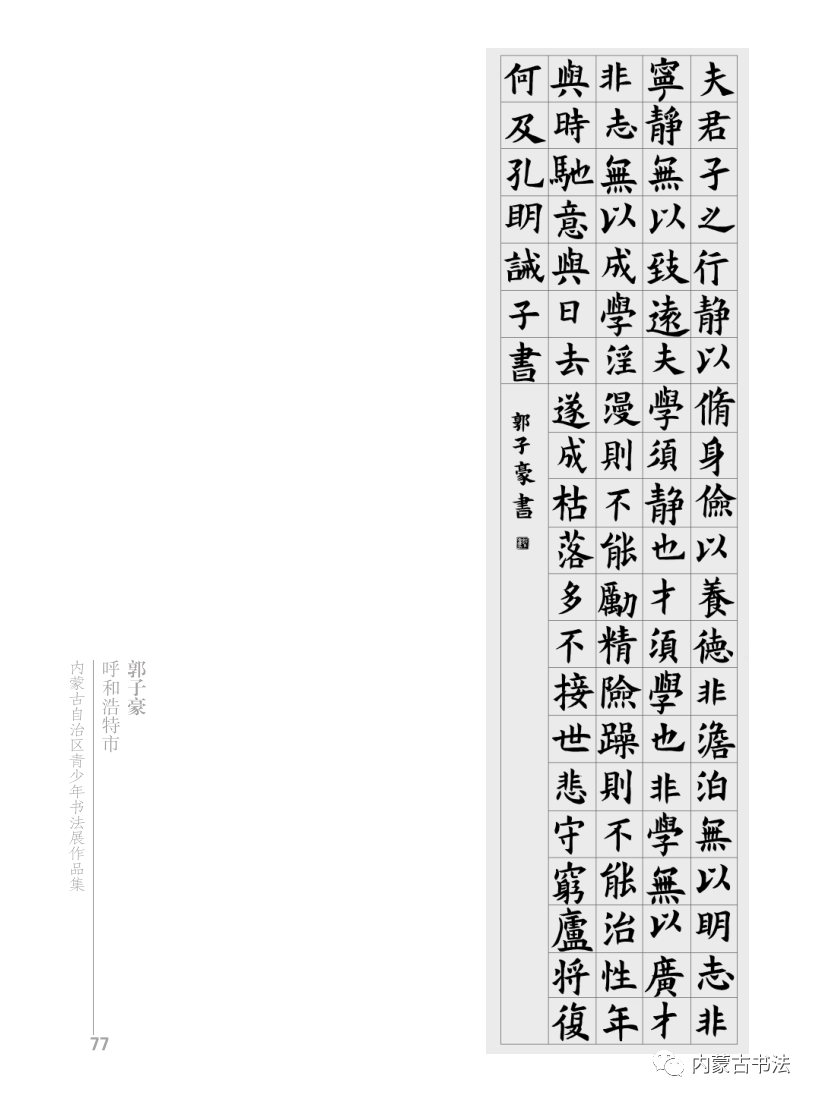 夫君子之行静以脩身儉以養德非澹泊無以明志非
寧靜無以致遠夫學須静也才須學也非學無以廣才
非志無以成學淫漫則不能勵精險躁則不能治性年
與時馳意與日去遂成枯落多不接世悲守窮廬将復
何及孔明誡子書
郭子豪書
郭子豪
呼和浩特市
内蒙古自治区青少年书法展作品集
77
内蒙古书法